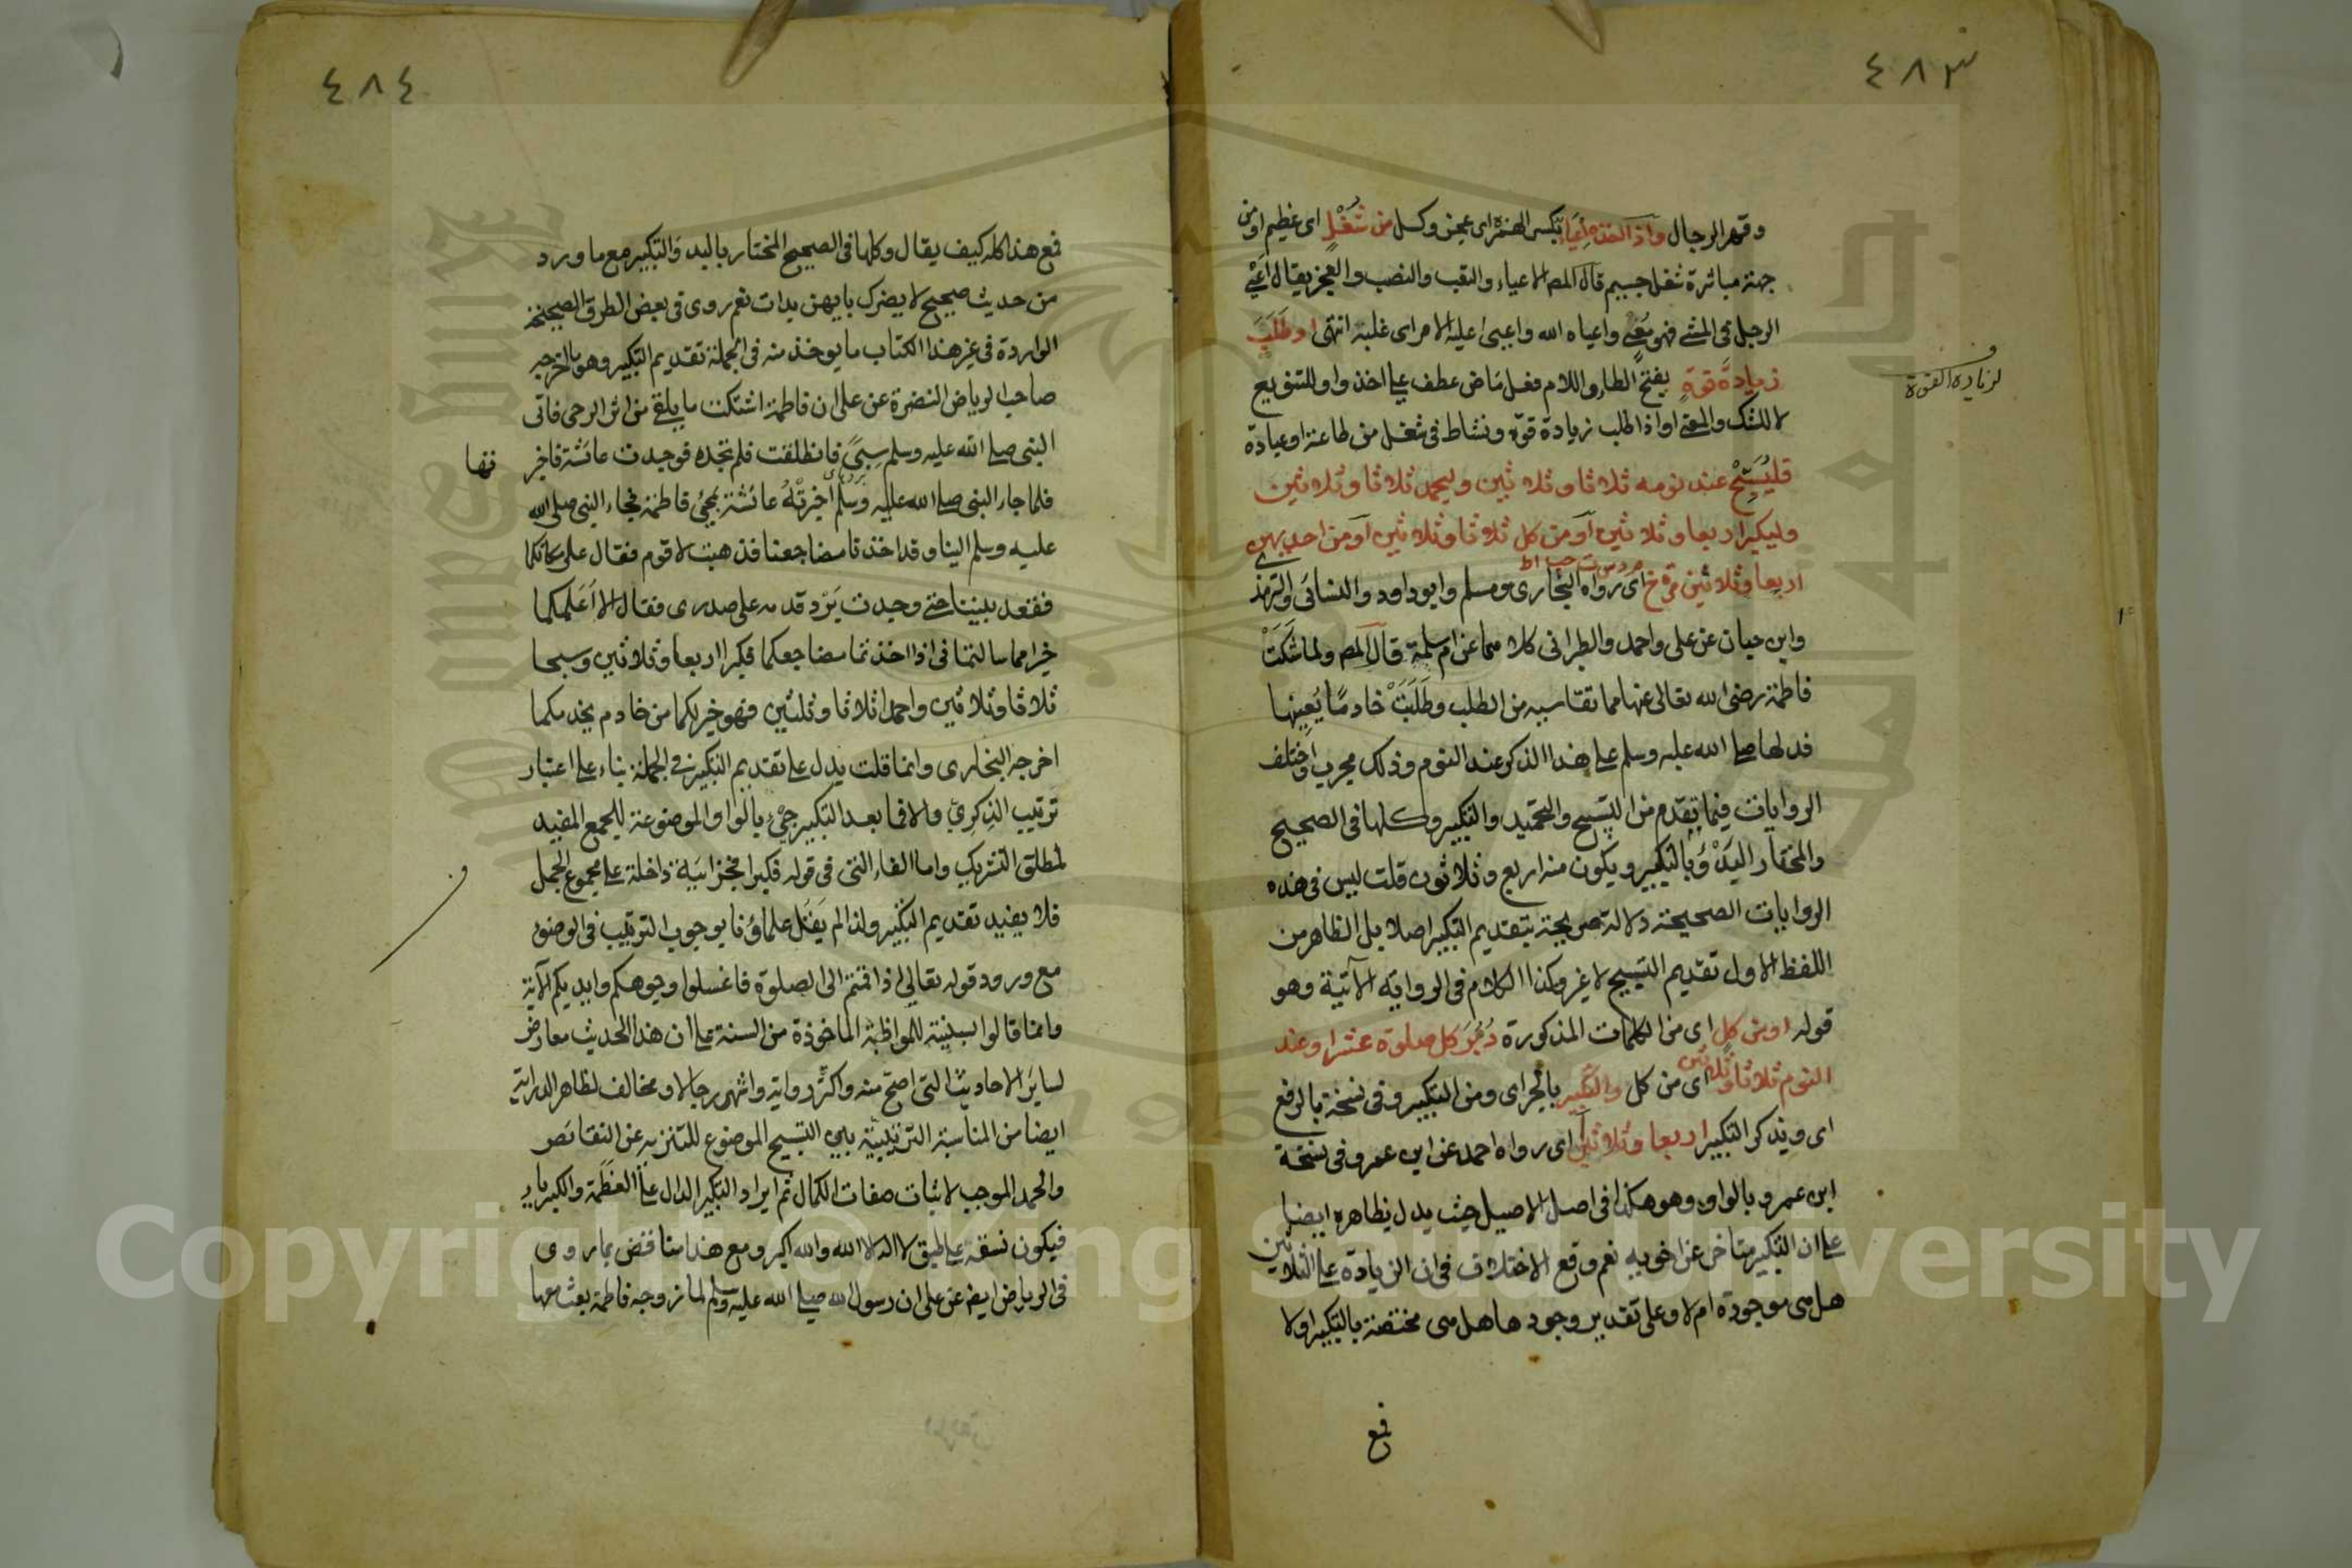 ٤٨٣
وقهر الرجال واذا اخذه إعياء بكسر الهمزة اى عجز وكسل من شُغْلٍ اى عظيم او من
جهة مباشرة شغل جسيم قال المص الاعياء والتعب والنصب والعجز يقال أَعْيَ
الرجل فى المشى فهو مُعْيٍ واعياه الله واعيى عليه الامر اى غلبه انتهى او طَلَبَ
زيادَةَ قوّةٍ بفتح الطاء واللام فعل ماض عطف على اخذ واو للتنويع
لزيادة القوة
لا للشك والمعنى او اذا طلب زيادة قوّة ونشاط فى شغل من طاعة او عبادة
فليُسَبِّحْ عند نومه ثلاثا وثلاثين وليحمد ثلاثا وثلاثين
وليكبر اربعا وثلاثين او من كل ثلاثا وثلاثين او من احديهن
اربعا وثلاثين خ م د س ت حب اط اى رواه البخارى ومسلم وابو داود والنسائى والترمذى
وابن حبان عن على واحمد والطبرانى كلاهما عن ام سلمة قال المص ولما شَكَتْ
فاطمة رضى الله تعالى عنها مما تقاسيه من الطلب وطَلَبَتْ خادمًا يُعِينها
فدلها صلى الله عليه وسلم على هذا الذكر عند النوم وذلك مجرب واختلف
الروايات فيما تقدم من التسبيح والتحميد والتكبير وكلها فى الصحيح
والمختار البَدْؤُ بالتكبير ويكون منه اربع وثلاثون قلت ليس فى هذه
الروايات الصحيحة دلالة صريحة بتقديم التكبير اصلا بل الظاهر من
اللفظ الاول تقديم التسبيح لا غير وكذا الكلام فى الرواية الآتية وهو
قوله او من كلٍ اى من الكلمات المذكورة دُبُرَ كل صلوة عشرا وعند
النوم ثلاثا وثلاثين اى من كل والتكبير بالجر اى ومن التكبير وفى نسخة بالرفع
اى ويذكر التكبير اربعا وثلاثين أ اى رواه احمد عن ابن عمرو وفى نسخة
ابن عمر وبالواو وهو هكذا فى اصل الاصيل حيث يدل بظاهره ايضا
على ان التكبير متاخر عن اخويه نعم وقع الاختلاف فى ان الزيادة على الثلاثين
هل هى موجودة ام لا وعلى تقدير وجودها هل هى مختصة بالتكبير اولا
فمع
٤٨٤
فمع هذا كله كيف يقال وكلها فى الصحيح المختار بالبد والتكبير مع ما ورد
من حديث صحيح لا يضرك بايهن بدات نعم روى فى بعض الطرق الصحيحة
الواردة فى غير هذا الكتاب ما يوخذ منه فى الجملة تقديم التكبير وهو ما اخرجه
صاحب الرياض النضرة عن على ان فاطمة اشتكت ما يلقى من اثر الرحى فاتى
النبى صلى الله عليه وسلم سبىٌ فانطلقت فلم تجده فوجدت عائشة فاخبر
تها
فلما جاء النبى صلى الله عليه وسلم أخبرتْهُ عائشة بمجئ فاطمة فجاء النبى صلى الله
عليه وسلم الينا وقد اخذنا مضاجعنا فذهبت لاقوم فقال على مكانكما
فقعد بيننا حتى وجدت بَرْد قدمه على صدرى فقال الا اُعَلمكما
خيرا مما سالتما فى اذا اخذتما مضاجعكما فكبرا اربعا وثلاثين وسبحا
ثلاثا وثلاثين واحمدا ثلاثا وثلثين فهو خير لكما من خادم يخدمكما
اخرجه البخارى وانما قلت يدل على تقديم التكبير فى الجملة بناء على اعتبار
تَرتيب الذِكرِىّ والا فما بعد التكبير جئ بالواو الموضوعة للجمع المفيد
لمطلق التشريك واما الفاء التى فى قوله فكبرا فجزائية داخلة على مجموع الجمل
فلا يفيد تقديم التكبير ولذا لم يَقُل علماؤنا بوجوب الترتيب فى الوضوء
مع ورود قوله تعالى اذا قمتم الى الصلوة فاغسلوا وجوهكم وايديكم الآية
وانما قالوا بسنيته للمواظبة الماخوذة من السنة على ان هذا الحديث معارض
لسائر الاحاديث التى اصَحّ منه واكثر رواية واشهر رجالا ومخالف لظاهر الدراية
ايضا من المناسبة الترتيبية بين التسبيح الموضوع للتنزيه عن النقائص
والحمد الموجب لاثبات صفات الكمال ثم ايراد التكبير الدال على العَظَمة والكبرياء
فيكون نسقه على طبق لا اله الا الله والله اكبر ومع هذا مناقض بما روى
فى الرياض ايضا عن على ان رسول الله صلى الله عليه وسلم لما زوجه فاطمة بعث معها
Copyright © King Saud University